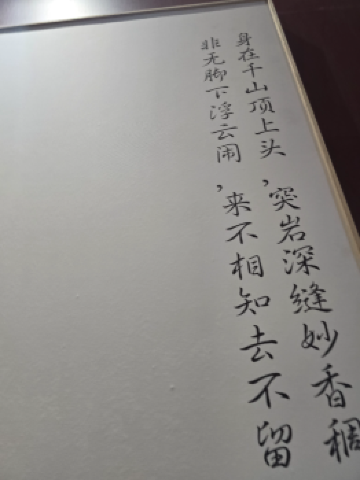 身在千山顶上头，突岩深缝妙香稠
非无脚下浮云闹，来不相知去不留